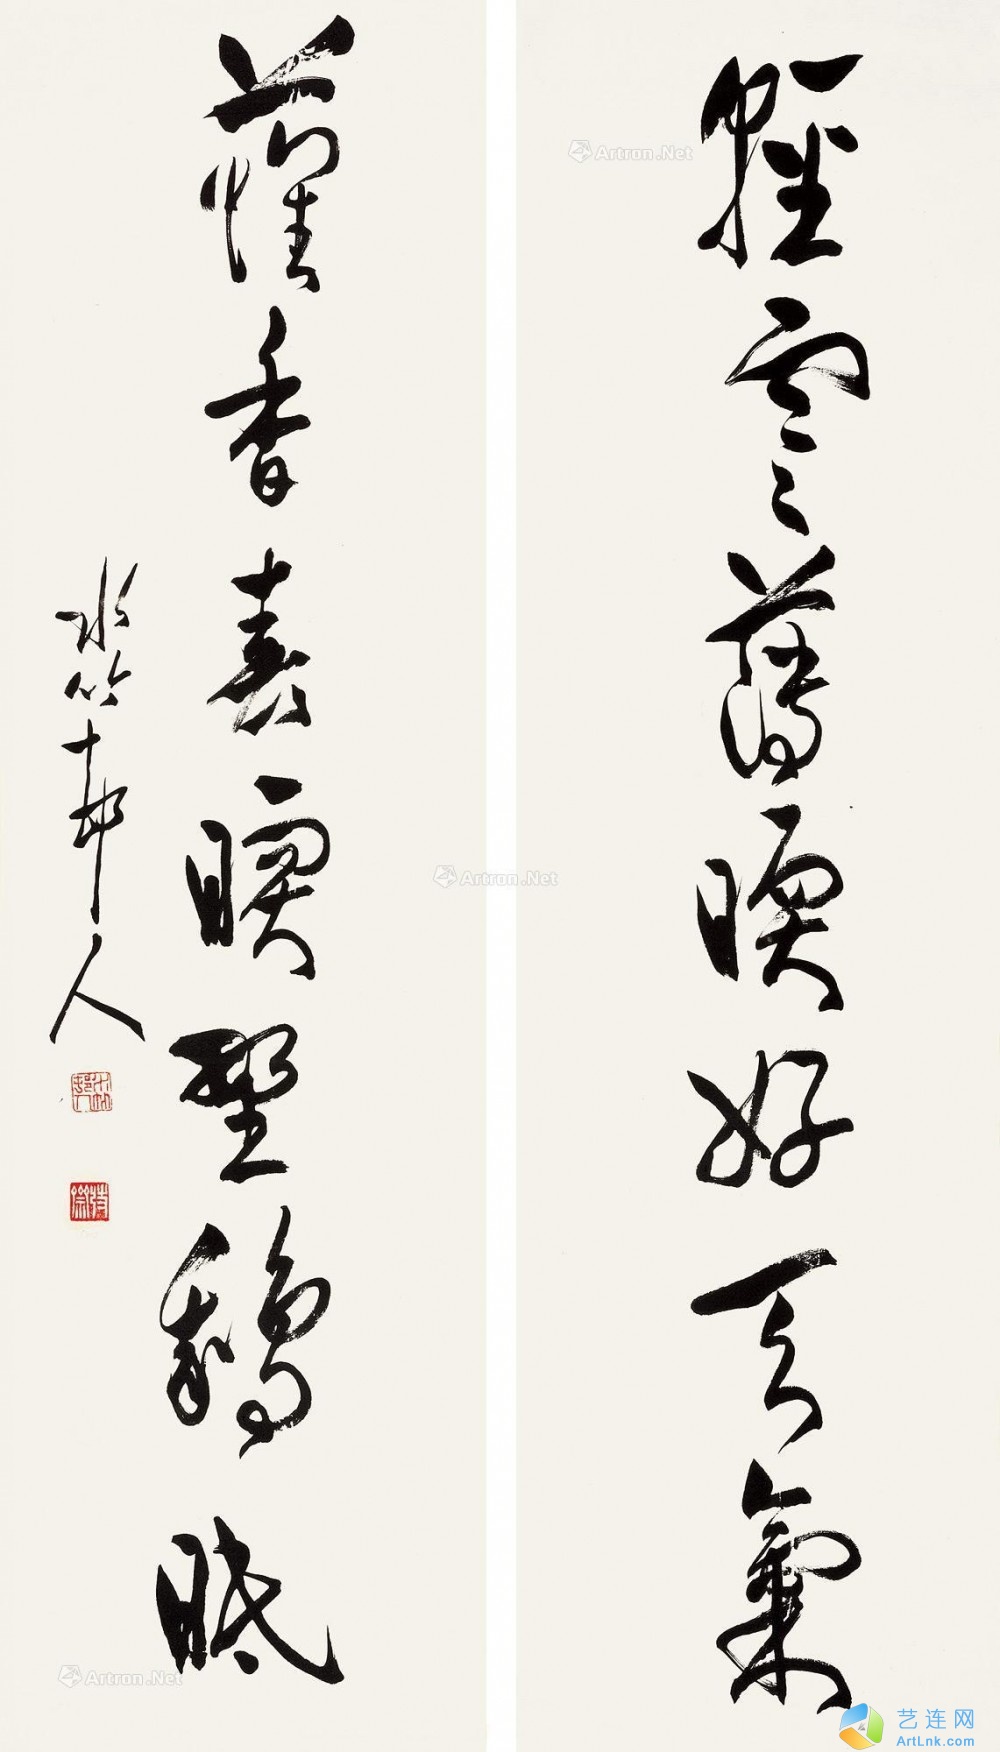 輕雲薄暖好天氣
香暖野眠
水竹邨人
水竹邨人
Artron.Net
Artron.Net
Artron.Net
艺连网
ArtLnk.com